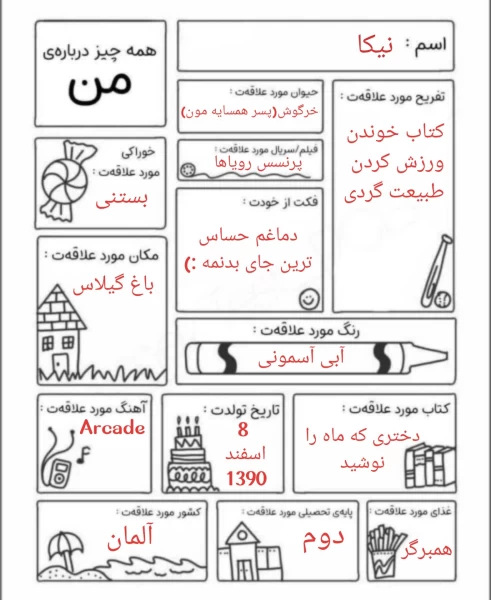 همه چیز درباره‌ی
من
اسم : نیکا
حیوان مورد علاقه‌ت :
خرگوش(پسر همسایه مون)
تفریح مورد علاقه‌ت :
کتاب خوندن
ورزش کردن
طبیعت گردی
خوراکی
مورد علاقه‌ت :
بستنی
فیلم/سریال مورد علاقه‌ت :
پرنسس رویاها
فکت از خودت :
دماغم حساس
ترین جای بدنمه :)
مکان مورد علاقه‌ت :
باغ گیلاس
رنگ مورد علاقه‌ت :
آبی آسمونی
آهنگ مورد علاقه‌ت :
Arcade
تاریخ تولدت :
8
اسفند
1390
کتاب مورد علاقه‌ت :
دختری که ماه را
نوشید
کشور مورد علاقه‌ت :
آلمان
پایه‌ی تحصیلی مورد علاقه‌ت :
دوم
غذای مورد علاقه‌ت :
همبرگر